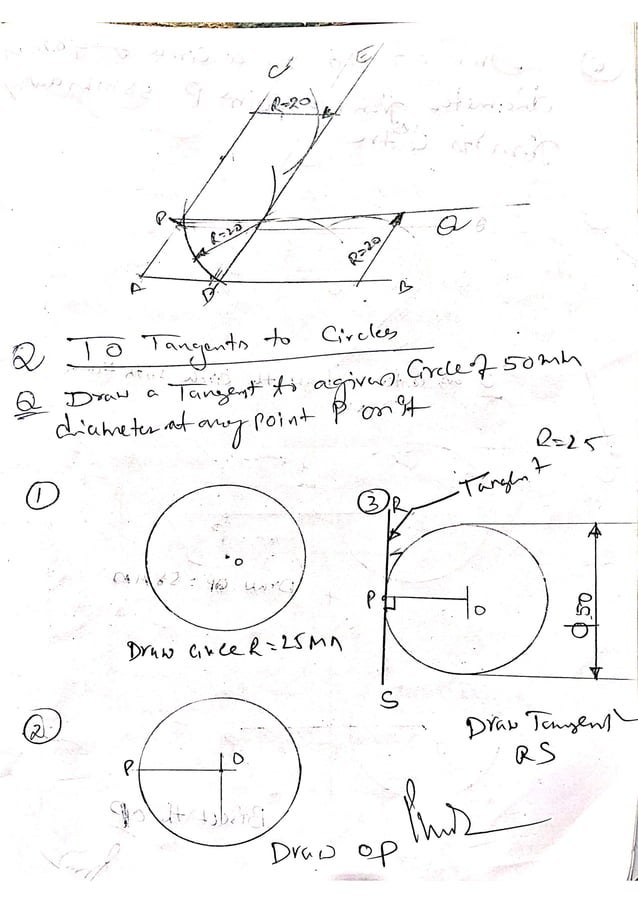 C
E
R=20
P
R=20
R=20
Q
A
D
B
Q TO Tangents to Circles
Q Draw a Tangent to a given Circle of 50mm
diameter at any point P on it
R=25
① 
O
Draw circle R=25MM
③ R
Tangent
P
O
Ø50
S
Draw Tangent
RS
②
P
O
Draw OP